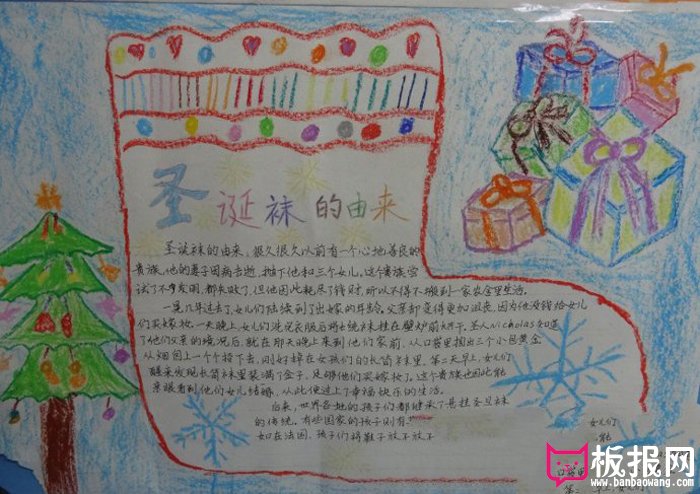 圣诞袜的由来
圣诞袜的由来,很久很久以前有一个心地善良的
贵族,他的妻子因病去逝,抛下他和三个女儿,这个贵族尝
试了不少发明,都失败了,但他因此耗尽了钱财,所以不得不搬到一家农舍里生活。
一晃几年过去了,女儿们陆续到了出嫁的年龄,父亲却变得更加沮丧,因为他没钱给女儿
们买嫁妆,一天晚上,女儿们洗完衣服后将长统袜挂在壁炉前烘干,圣人Nicholas知道
了他们父亲的境况后,就在那天晚上来到他们家前,从口袋里掏出三个小包黄金
从烟囱上一个个投下去,刚好掉在女孩们的长筒袜里,第二天早上,女儿们
醒来发现长筒袜里装满了金子,足够他们买嫁妆了。这个贵族也因此能
亲眼看到他们女儿结婚,从此便过上了幸福快乐的生活。
后来,世界各地的孩子们都继承了悬挂圣旦袜
的传统,有些国家的孩子则有
如在法国,孩子们将鞋子放
女儿们
能
口袋里
板报网
www.banbaowang.com